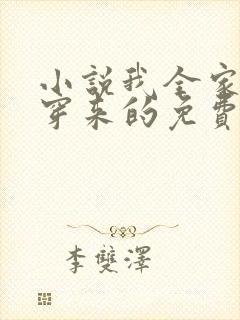 小說我全家
穿來的免費
李雙澤